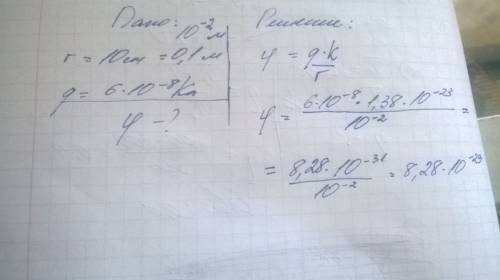 Дано:
10⁻² м
r = 10 см = 0,1 м
q = 6·10⁻⁸ Кл
φ - ?
Решение:
φ = q·k / r
φ = 6·10⁻⁸ · 1,38·10⁻²³ / 10⁻² =
= 8,28·10⁻³¹ / 10⁻² = 8,28·10⁻²⁹